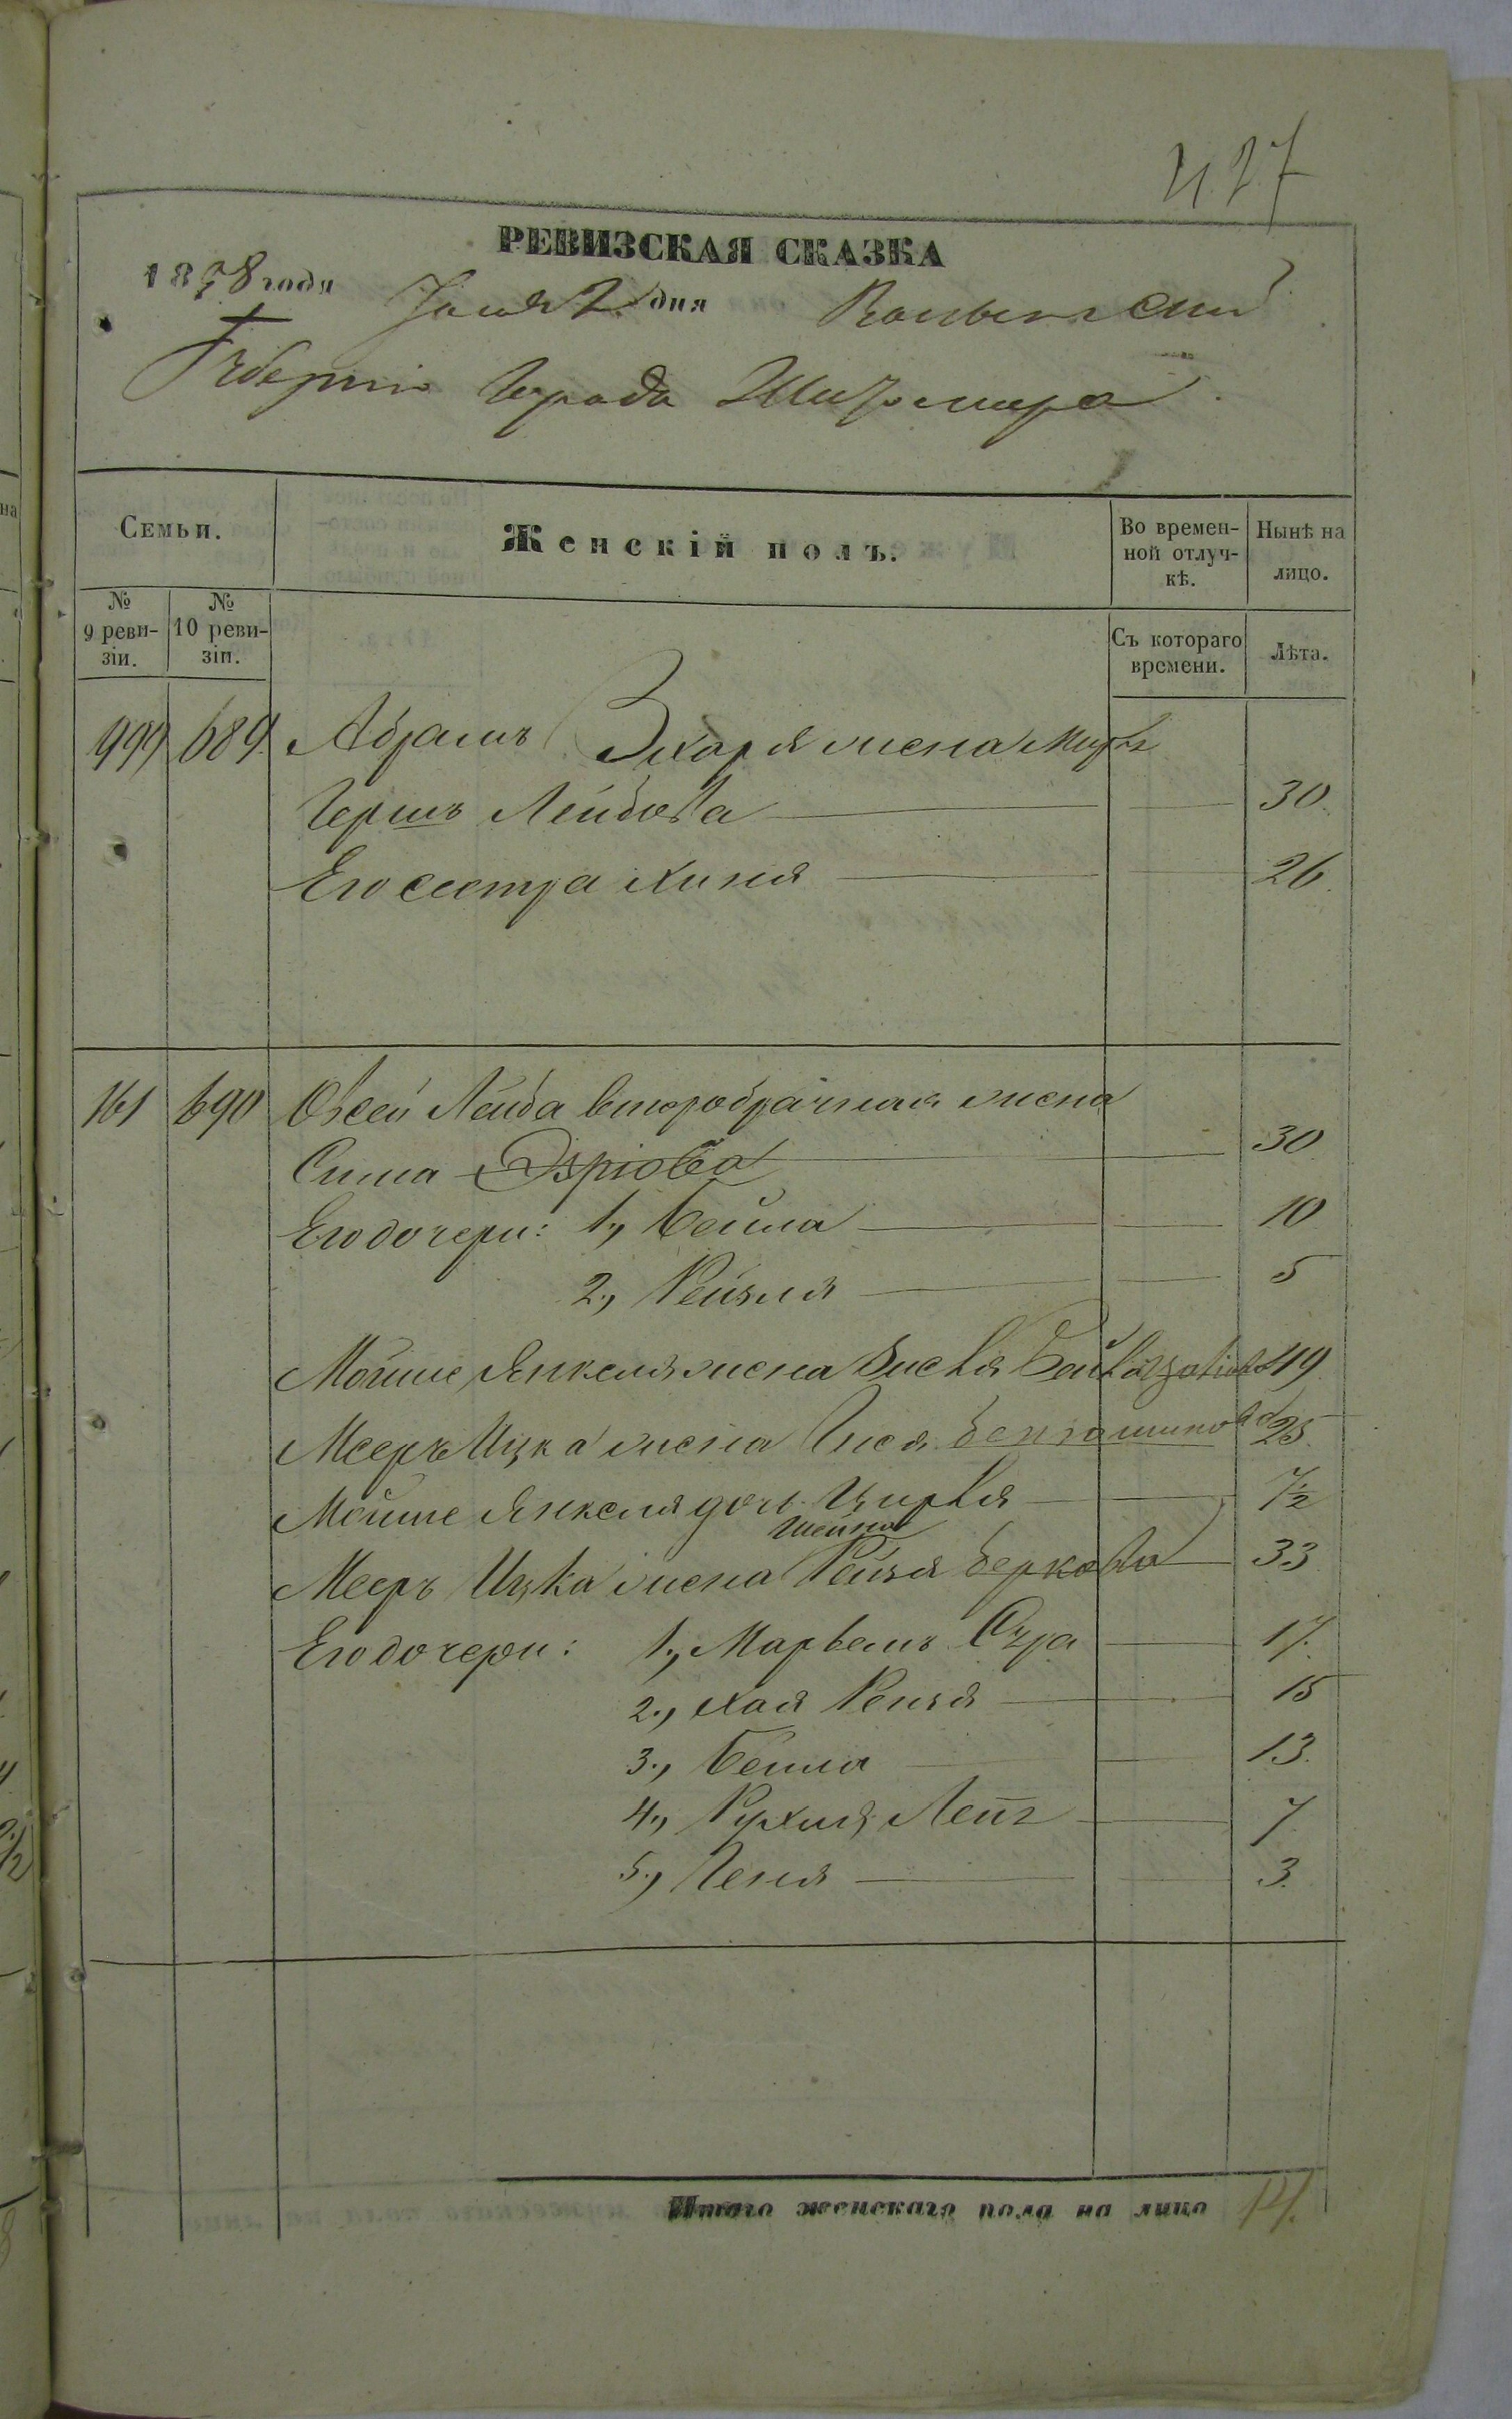 427
РЕВИЗСКАЯ СКАЗКА
1858 года Іюня 2 дня Волынской
Губерніи Города Житомира
Семьи.
Женскій полъ.
Во времен-
ной отлуч-
кѣ.
Нынѣ на
лицо.
№
9 реви-
зіи.
№
10 реви-
зіи.
Съ котораго
времени.
Лѣта.
999 689 Абрамъ жена
Гершъ Лейбова 30.
Его сестра Хиня 26.
161 690 Овсей Лейба второбрачная жена
Сима 30
Его дочери: 1, Бейла 10
2., Рейзля 5
Мойше Янкеля жена 49
Мееръ Ицка жена Гися Беніоминова 25.
Мойше Янкеля дочь Цирля 7½
Шейна
Мееръ Ицка жена Рейзя Беркова 33
Его дочери: 1., Марьемъ Сура 17.
2., Хая Рейзя 15
3., Бейла 13.
4., Рухля 7.
5., Геня 3.
Итого женскаго пола на лицо 14.